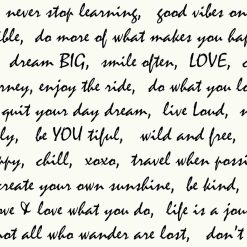 never stop learning, good vibes on
do more of what makes you hap
dream BIG, smile often, LOVE,
enjoy the ride, do what you lo
quit your day dream, live Loud,
be YOU tiful, wild and free,
chill, xoxo, travel when possi
create your own sunshine, be kind,
& love what you do, life is a jou
not all who wander are lost, don't